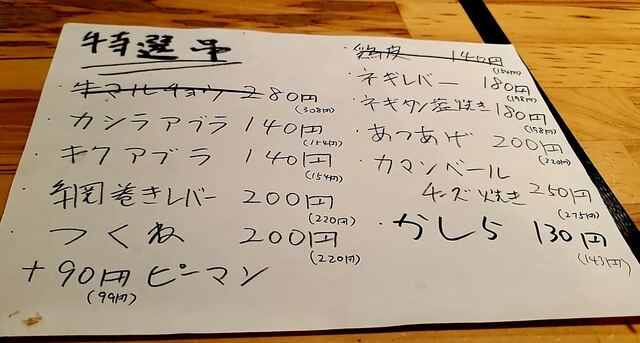 特選串
・牛マルチョウ 280円
(308円)
・カシラアブラ 140円
(154円)
・キクアブラ 140円
(154円)
・網巻きレバー 200円
(220円)
・つくね 200円
(220円)
+90円ピーマン
(99円)
・鶏皮 140円
(154円)
・ネギレバー 180円
(198円)
・ネギタン塩焼き 180円
(198円)
・あつあげ 200円
(220円)
・カマンベール
チーズ焼き 250円
(275円)
・かしら 130円
(143円)